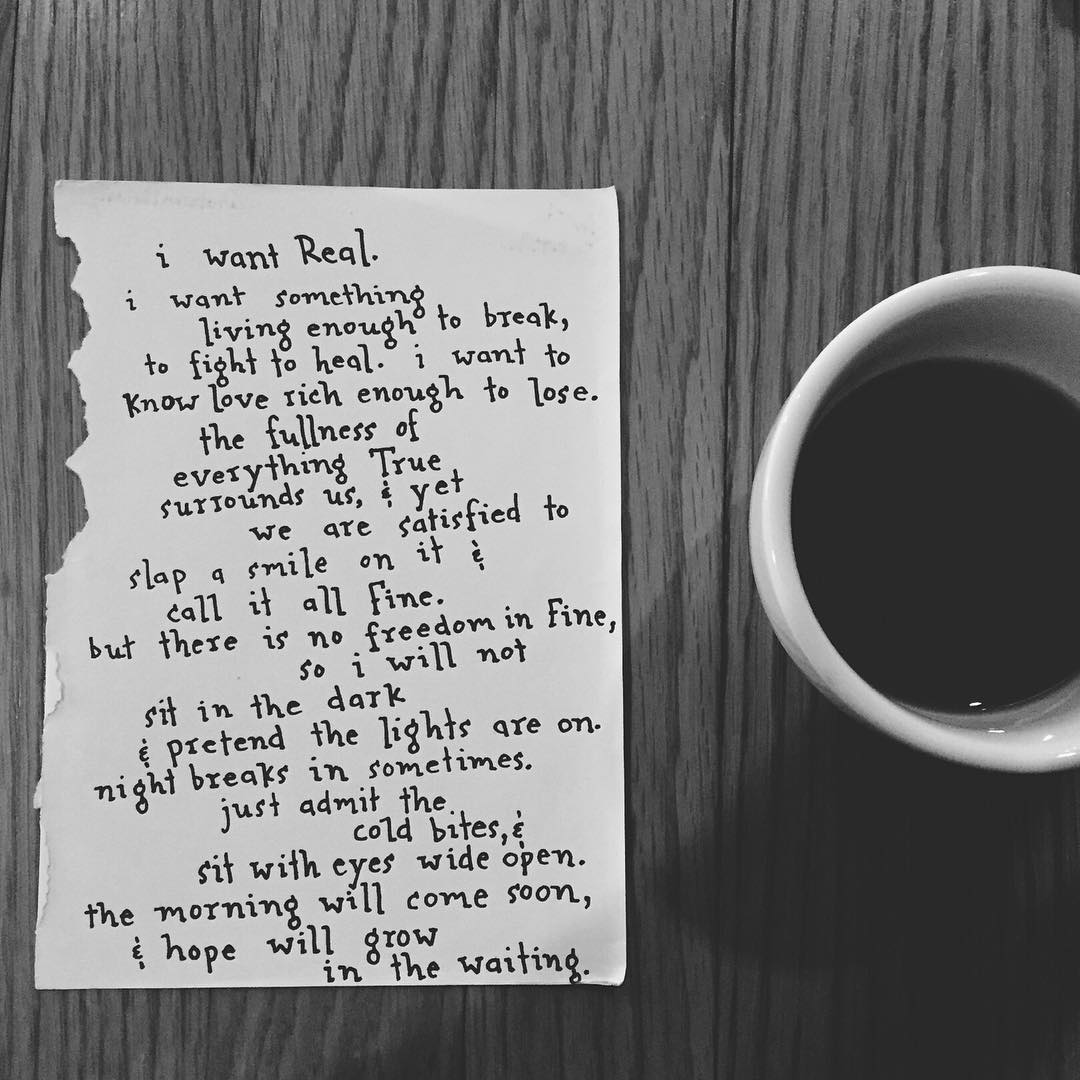 i want Real.
i want something
living enough to break,
to fight to heal. i want to
know love rich enough to lose.
the fullness of
everything True
surrounds us, & yet
we are satisfied to
slap a smile on it &
call it all Fine.
but there is no freedom in Fine,
so i will not
sit in the dark
& pretend the lights are on.
night breaks in sometimes.
just admit the
cold bites, &
sit with eyes wide open.
the morning will come soon,
& hope will grow
in the waiting.